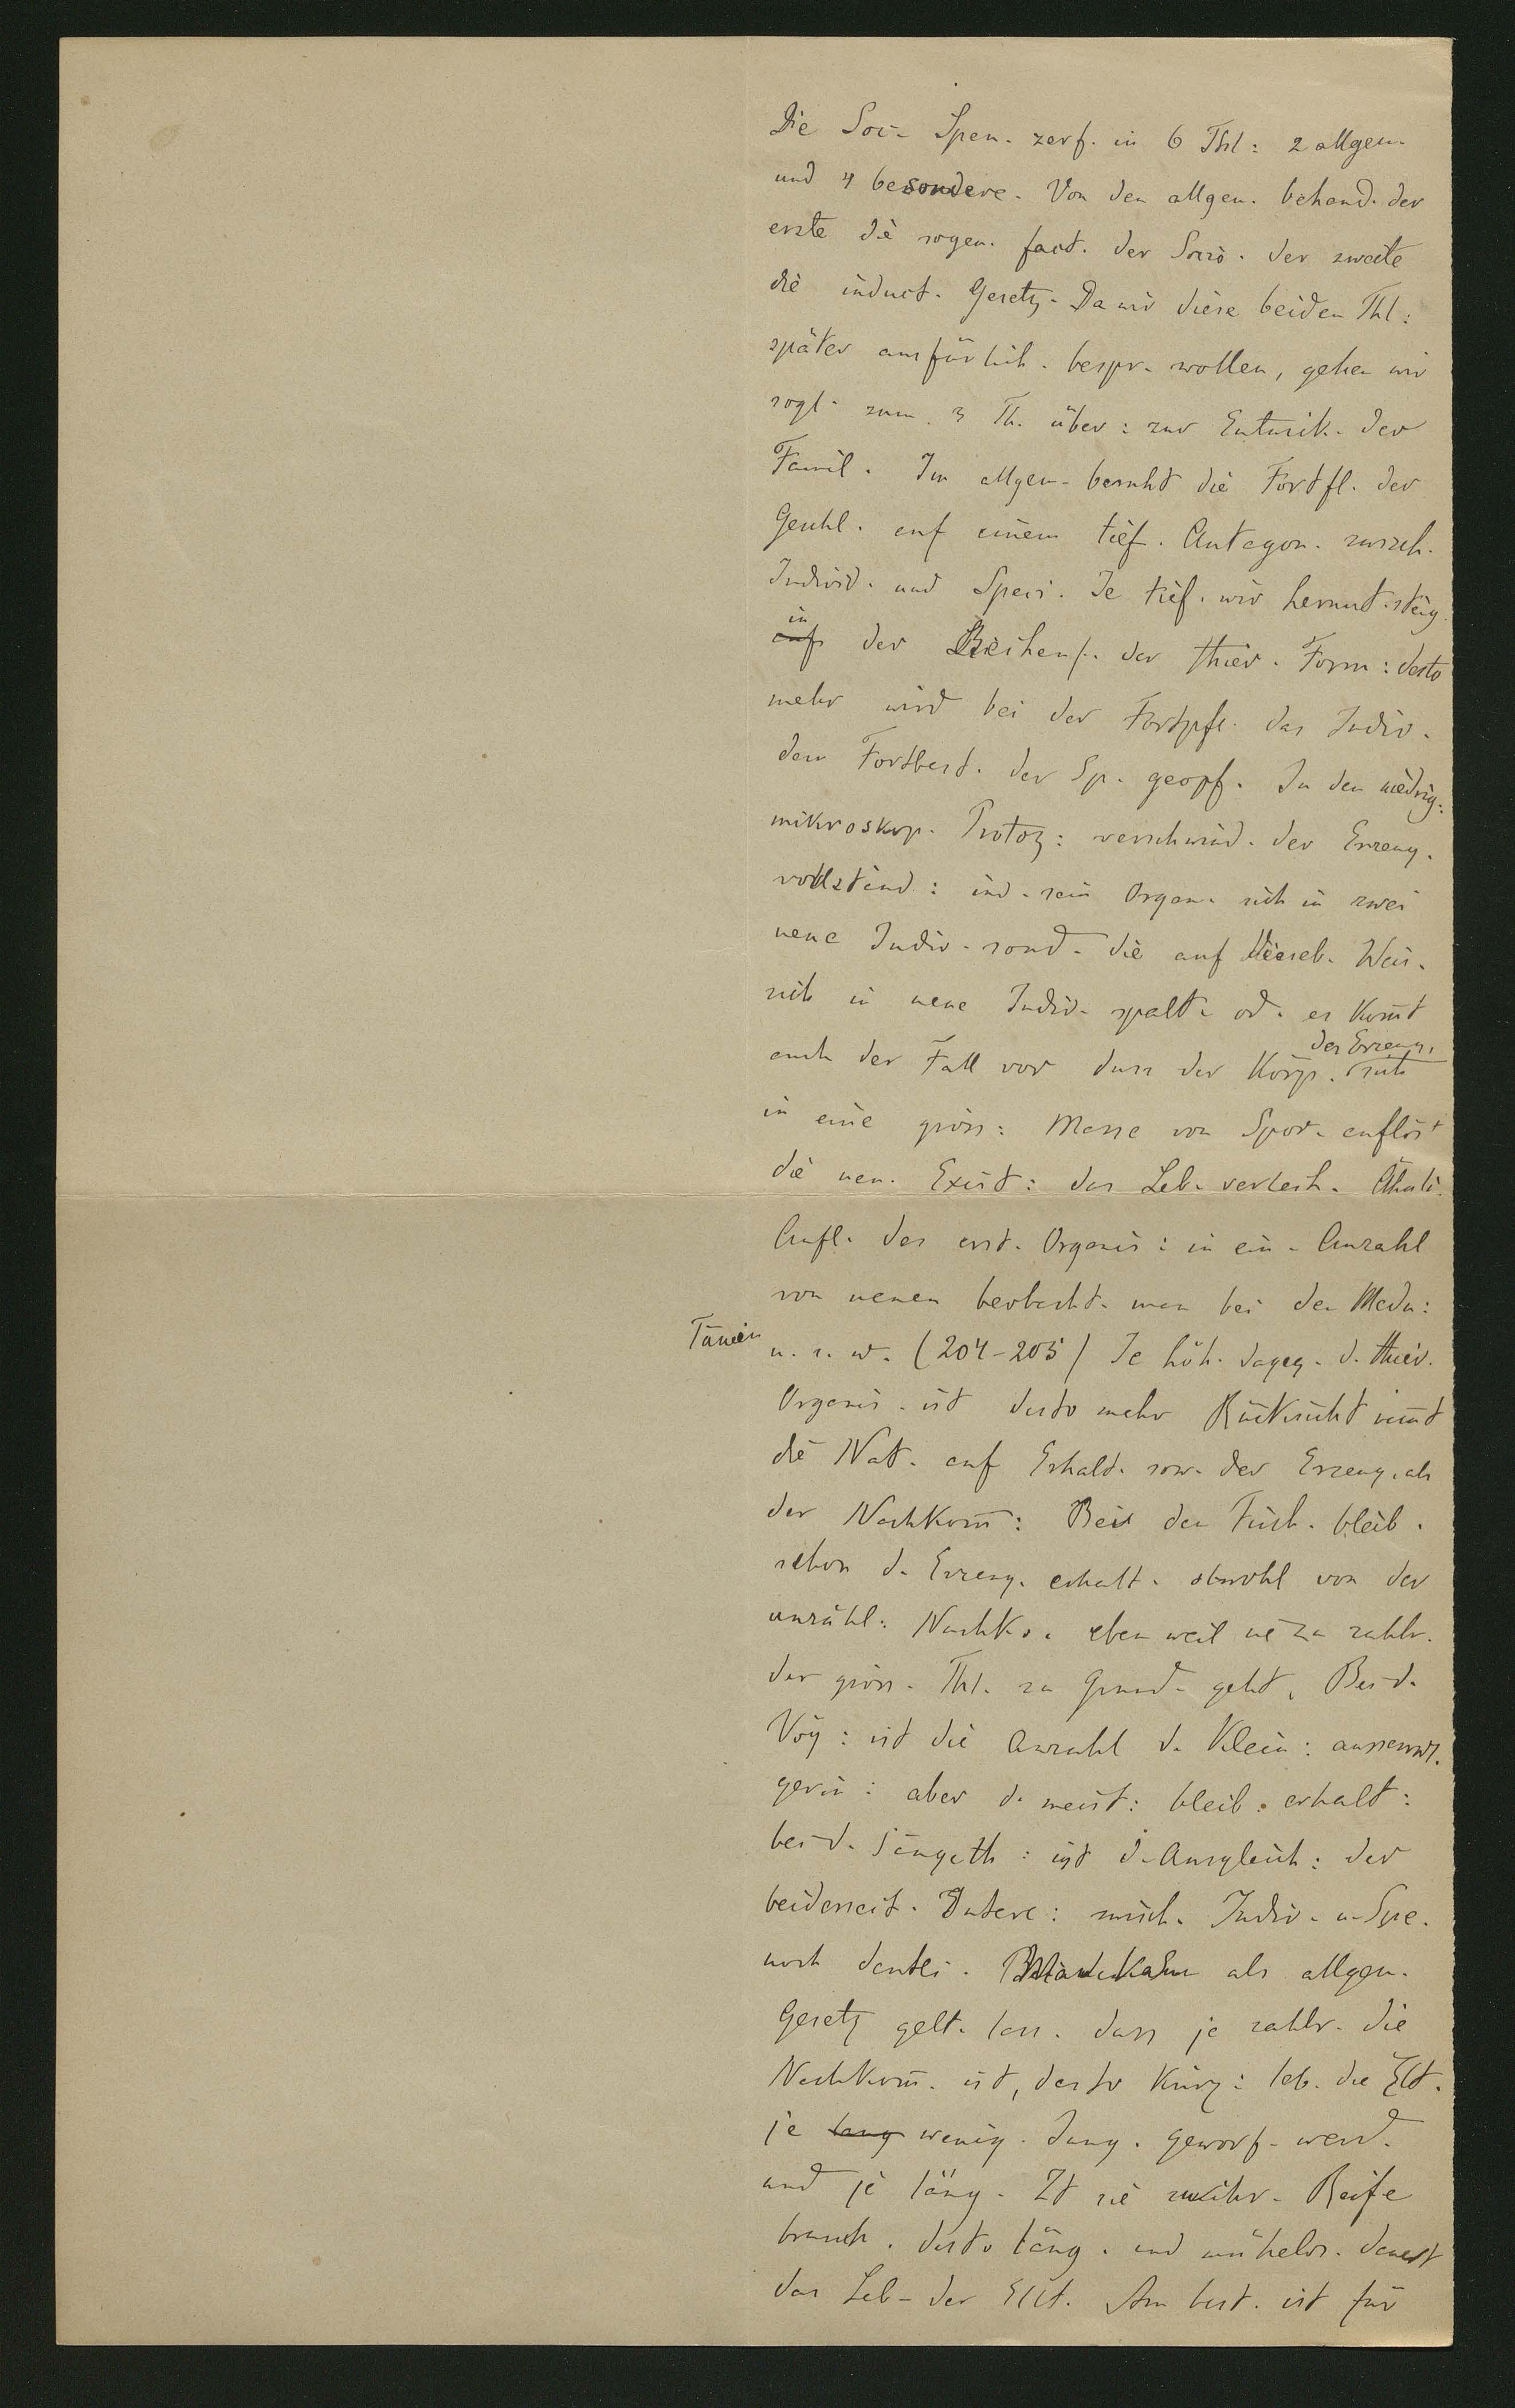 Die Soc. Spen. zerf. in 6 Thl: 2 allgem.
und 4 besondere. Von den allgem. behand. der
erste die sogen. fact. der Socio. der zweite
die induct. Gesetz. Da wir diese beiden Thl:
später ausfürlich. bespr. wollen, gehen wir
sogl. zum 3 Th. über: zur Entwick. der
Famil. Im allgem. beruht die Fortpfl. der
auf einem tief. Antagon. zwisch.
Individ. und Speci. Je tief. wir herunt. steig.
in
auf der Reihenf. der thier. Form: desto
mehr wird bei der Fortpfl. das Indiv.
dem Fortbest. der Sp. geopf. In den niedrig:
mikroskop. Protoz: verschwind. der Erzeug.
vollständ: ind. sein Organ. sich in zwei
neue Indiv. sond. die auf dieselb. Weis.
sich in neue Indiv. spalt. od. es kom̄t
auch der Fall vor dass der Körp. des Erzeug. sich
in eine gröss: Masse von Spor. auflöst
die neu. Exist: das Leb. verleih. Ähnli.
Aufl. des erst. Organis: in ein. Anzahl
von neuen beobacht. man bei den Medu:
Tänien
u. s. w. (204-205) Je höh. dageg. d. thier.
Organis. ist desto mehr Rücksicht nim̄t
die Nat. auf Erhalt. sow. der Erzeug. als
der Nachkom̄: Bei den Fisch. bleib.
schon d. Erzeug. erhalt. obwohl von der
unzähl: Nachko. eben weil sie zu zahlr.
der gröss. Thl. zu Grund. geht. Bei d.
Vög: ist die Anzahl d. Klein: ausserord.
gerin: aber d. meist: bleib: erhalt:
bei d. Säugeth: ist d. Ausgleich: der
beiderseit. Intere: zwisch. Indiv. u. Spe.
noch deutli. Man kann als allgem.
Gesetz gelt. lass. dass je zahlr. die
Nachkom̄. ist, desto kürz: leb. die Elt.
je lang wenig. Jung. geworf. werd.
und je läng. Zt sie zu ihr. Reife
brauch. desto läng. und mühelos. dauert
das Leb. der Elt. Am best. ist für